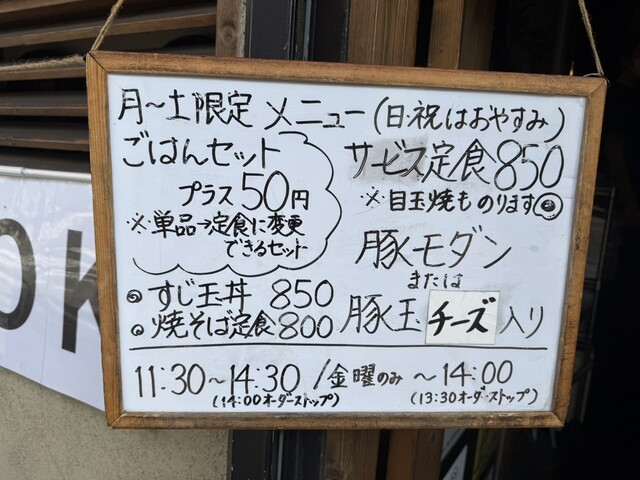 月〜土限定 メニュー(日・祝はおやすみ)
ごはんセット
プラス50円
※単品→定食に変更
できるセット
サービス定食850
※目玉焼ものります
豚モダン
または
豚玉チーズ入り
すじ玉丼 850
焼そば定食800
11:30〜14:30/金曜のみ 〜14:00
(14:00オーダーストップ)
(13:30オーダーストップ)
OK